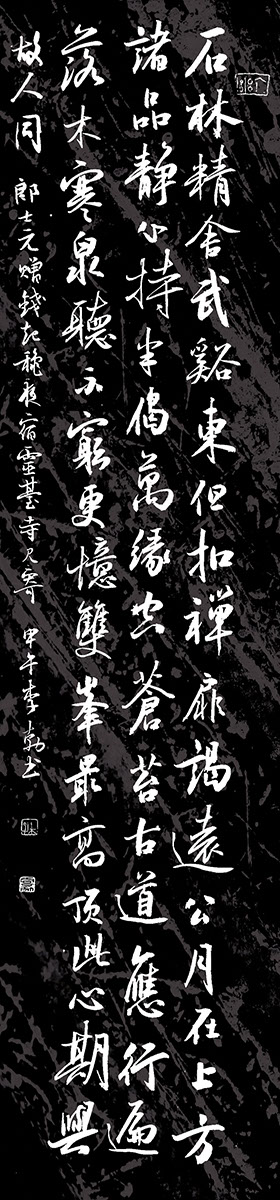 石林精舍武谿東夜扣禅扉謁遠公月在上方
諸品靜心持半偈萬緣空蒼苔古道應行遍
落木寒泉聽不窮更憶雙峯最高頂此心期興
故人同 郎士元贈錢起龝夜宿靈臺寺見寄 甲午李勃書